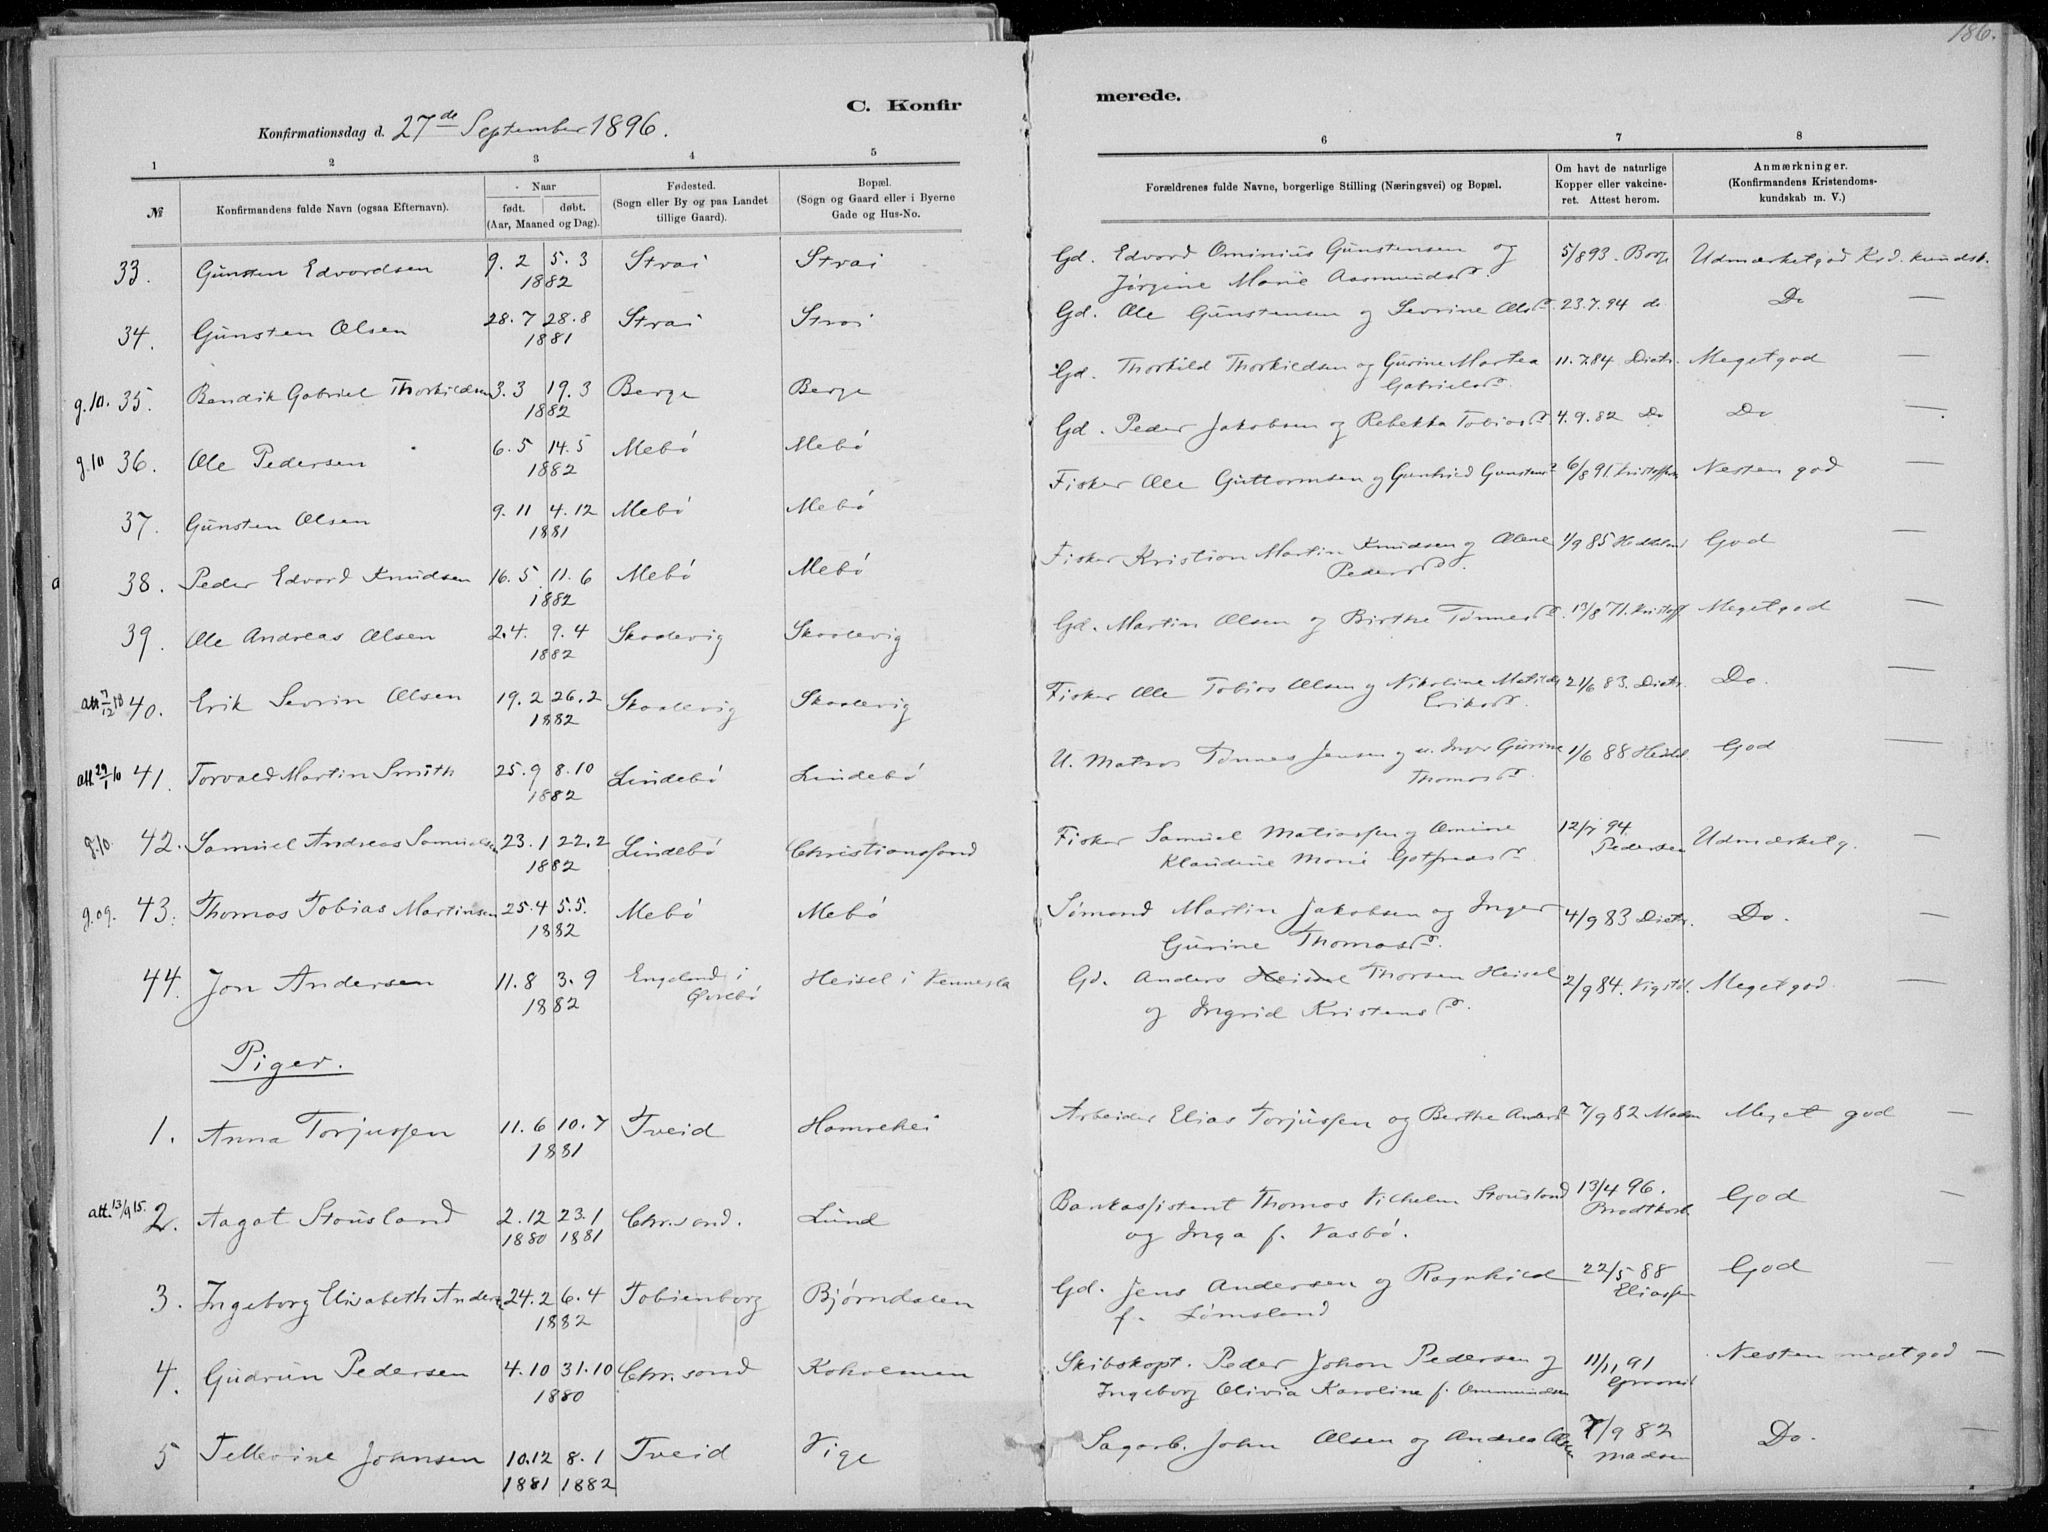 186.
C. Konfirmerede.
Konfirmationsdag d. 27de September 1896.
1 2 3 4 5 6 7 8
№
Konfirmandens fulde Navn (ogsaa Efternavn).
Naar
født. døbt.
(Aar, Maaned og Dag).
Fødested.
(Sogn eller By og paa Landet
tillige Gaard).
Bopæl.
(Sogn og Gaard eller i Byerne
Gade og Hus-No.
Forældrenes fulde Navne, borgerlige Stilling (Næringsvei) og Bopæl.
Om havt de naturlige
Kopper eller vakcine-
ret. Attest herom.
Anmærkninger.
(Konfirmandens Kristendoms-
kundskab m. V.)
33. Gunsten Edvardsen 9. 2 5. 3 Strai Strai Gd. Edvard Ominius Gunstensen og 5/8 93. Borge Udmærketgod Krd. kundsk.
1882 Jørgine Marie Aasmundsd.
34. Gunsten Olsen 28. 7 28. 8 Strai Strai Gd. Ole Gunstensen og Sevrine Olsd. 23.7.94 do Do —
1881
g.10. 35. Bendik Gabriel Thorkildsen 3. 3 19. 3 Berge Berge Gd. Thorkild Thorkildsen og Gurine Martea 11.7.84 Dietr. Meget god —
1882 Gabrielsd.
g.10 36. Ole Pedersen 6. 5 14. 5 Mebø Mebø Gd. Peder Jakobsen og Rebekka Tobiasd. 4. 9. 82 Do Do —
1882
37. Gunsten Olsen 9. 11 4. 12 Mebø Mebø Fisker Ole Guttormsen og Gunhild Gunstensd. 6/8 91. Kristoffersen Nesten god —
1881
38. Peder Edvard Knudsen 16. 5 11. 6 Mebø Mebø Fisker Kristian Martin Knudsen og Olene 1/9 85 God —
1882 Pedersd.
39. Ole Andreas Olsen 2. 4. 9. 4 Skaalevig Skaalevig Gd. Martin Olsen og Birthe Tønnesd. 13/8 71. Kristoff Meget god —
1882
att 7/12 18 40. Erik Sevrin Olsen 19. 2 26. 2 Skaalevig Skaalevig Fisker Ole Tobias Olsen og Nikoline Matilde 21/6 83. Dietr. Do. —
1882 Eriksd.
att 29/1 10 41. Torvald Martin Smith 25. 9 8. 10 Lindebø Lindebø U. Matros Tønnes Jensen og u. Inger Gurine 1/6 88 God —
1882 Thomasd.
g.10. 42. Samuel Andreas Samuelsen 23. 1 22. 2 Lindebø Christianssand Fisker Samuel Matiassen og Omine 12/7 94. Udmærket g. —
1882 Klaudine Marie Gotfredsd. Pedersen
g.09. 43. Thomas Tobias Martinsen 25. 4 5. 5. Mebø Mebø Sømand Martin Jakobsen og Inger 4/9 83 Dietr. Do. —
1882 Gurine Thomasd.
44. Jon Andersen 11. 8 3. 9 Engeland i Heisel i Vennesla Gd. Anders Heisel Thorsen Heisel 2/9 84. Vigstøl. Meget god. —
1882 Øvrebø og Ingrid Kristensd.
Piger.
1. Anna Torjussen 11. 6 10. 7 Tveid Hamrehei Arbeider Elias Torjussen og Berthe Andersd. 7/9 82 Madsen Meget god —
1881
att. 13/9 15. 2. Aagot Stousland 2. 12 23. 1 Chr.sand. Lund Bankassistent Thomas Vilhelm Stousland 13/4 96. God —
1880 1881 og Inga f. Vasbø. Brodtkorb
3. Ingeborg Elisabeth Anders 24. 2 6. 4 Tobienborg Bjørndalen Gd. Jens Andersen og Ragnhild 22/5 88 God —
1882 f. Lømsland Eliassen
4. Gudrun Pedersen 4. 10 31. 10 Chr.sand Koholmen Skibskapt. Peder Johan Pedersen og 11/11 91 Nesten meget god —
1880 Ingeborg Olivia Karoline f. Ommundsen
5 Tellerine Johnsen 10. 12 8. 1 Tveid Vige Sagarb. John Olsen og Andrea Olsen 7/9 82 Do. —
1881 1882 Madsen